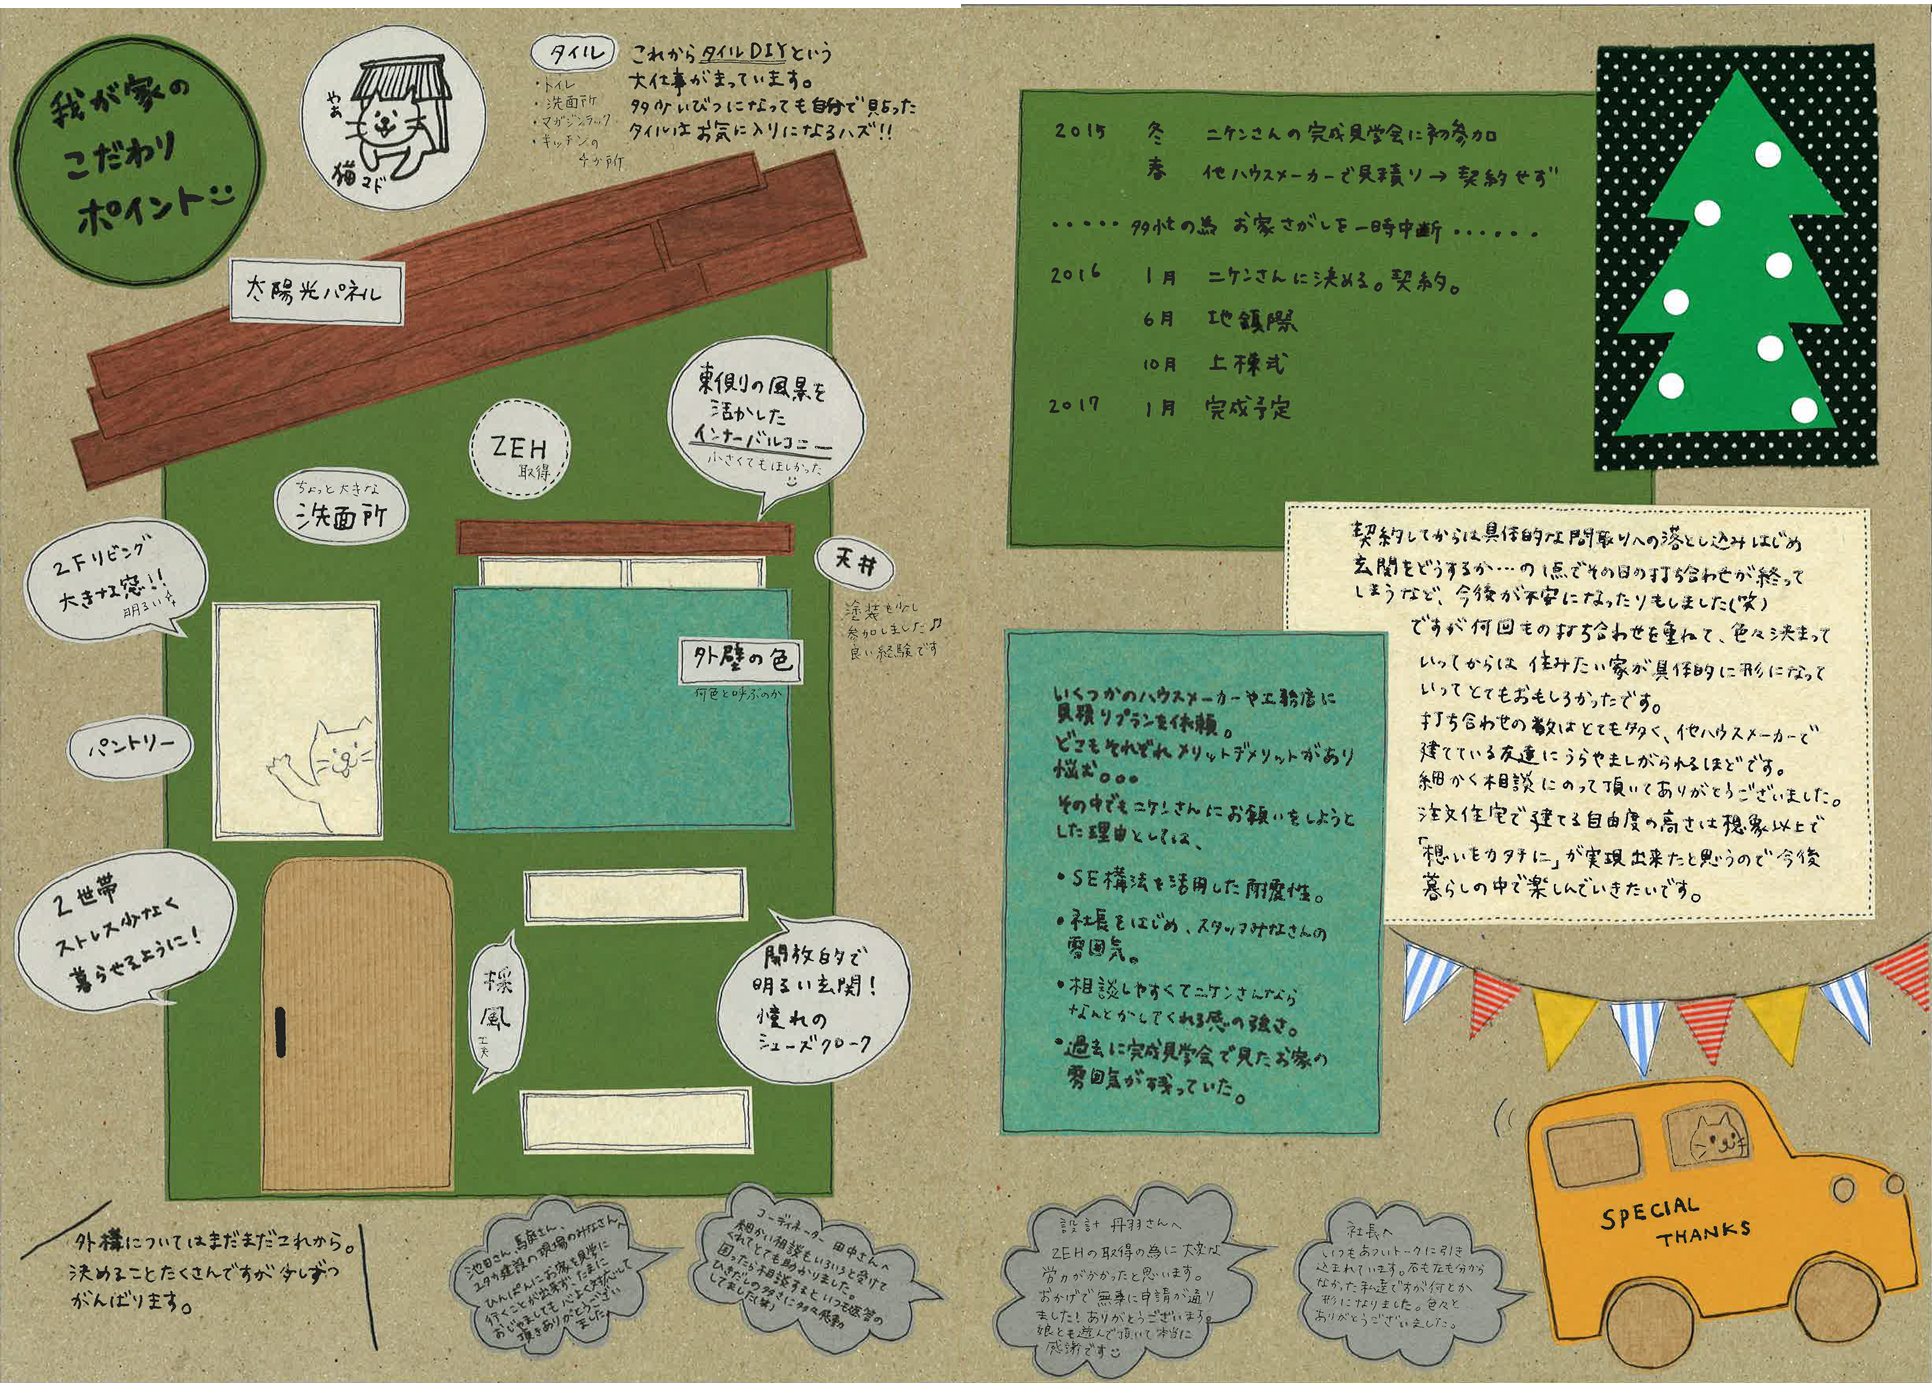 我が家の
こだわり
ポイント
やあ
猫マド
タイル
・トイレ
・洗面所
・マガジンラック
・キッチンの
4か所
これからタイルDIYという
大仕事がまっています。
多少いびつになっても自分で貼った
タイルはお気に入りになるハズ!!
太陽光パネル
東側の風景を
活かした
インナーバルコニー
小さくてもほしかった
ZEH
取得
ちょっと大きな
洗面所
2Fリビング
大きな窓!!
明るい
天井
塗装も少し
参加しました♫
良い経験です
外壁の色
何色と呼ぶのか
パントリー
2世帯
ストレス少なく
暮らせるように!
採風
工夫
開放的で
明るい玄関!
憧れの
シューズクローク
外構についてはまだまだこれから。
決めることたくさんですが少しずつ
がんばります。
池田さん、馬庭さん、
ユタカ建設の現場のみなさんへ
ひんぱんにお家を見学に
行くことが出来ず、たまに
おじゃましても心よく対応して
頂きありがとうござい
ました
コーディネーター 田中さんへ
細かい相談もいろいろと受けて
くれてとても助かりました。
困ったら相談するといつも返答の
ひきだしの多さに多々感動
してました(笑)
2015 冬 ニケンさんの完成見学会に初参加
春 他ハウスメーカーで見積り→契約せず
・・・・・多忙の為 お家さがしを一時中断・・・・・・
2016 1月 ニケンさんに決める。契約。
6月 地鎮際
10月 上棟式
2017 1月 完成予定
契約してからは具体的な間取りへの落とし込みはじめ
玄関をどうするか…の1点でその日の打ち合わせが終って
しまうなど、今後が不安になったりもしました(笑)
ですが何回もの打ち合わせを重ねて、色々決まって
いってからは 住みたい家が具体的に形になって
いってとてもおもしろかったです。
打ち合わせの数はとても多く、他ハウスメーカーで
建てている友達にうらやましがられるほどです。
細かく相談にのって頂いてありがとうございました。
注文住宅で建てる自由度の高さは想象以上で
「想いをカタチに」が実現出来たと思うので今後
暮らしの中で楽しんでいきたいです。
いくつかのハウスメーカーや工務店に
見積りプランを依頼。
どこもそれぞれメリットデメリットがあり
悩む。。。
その中でもニケンさんにお願いをしようと
した理由としては、
・SE構法を活用した耐震性。
・社長をはじめ、スタッフみなさんの
雰囲気。
・相談しやすくてニケンさんなら
なんとかしてくれる感の強さ。
・過去に完成見学会で見たお家の
雰囲気が残っていた。
設計 丹羽さんへ
ZEHの取得の為に大変な
労力がかかったと思います。
おかげで無事に申請が通り
ました!ありがとうございます。
娘とも遊んで頂いて本当に
感謝です
社長へ
いつもあついトークに引き
込まれています。右も左も分から
なかった私達ですが何とか
形になりました。色々と
ありがとうございました。
SPECIAL
THANKS